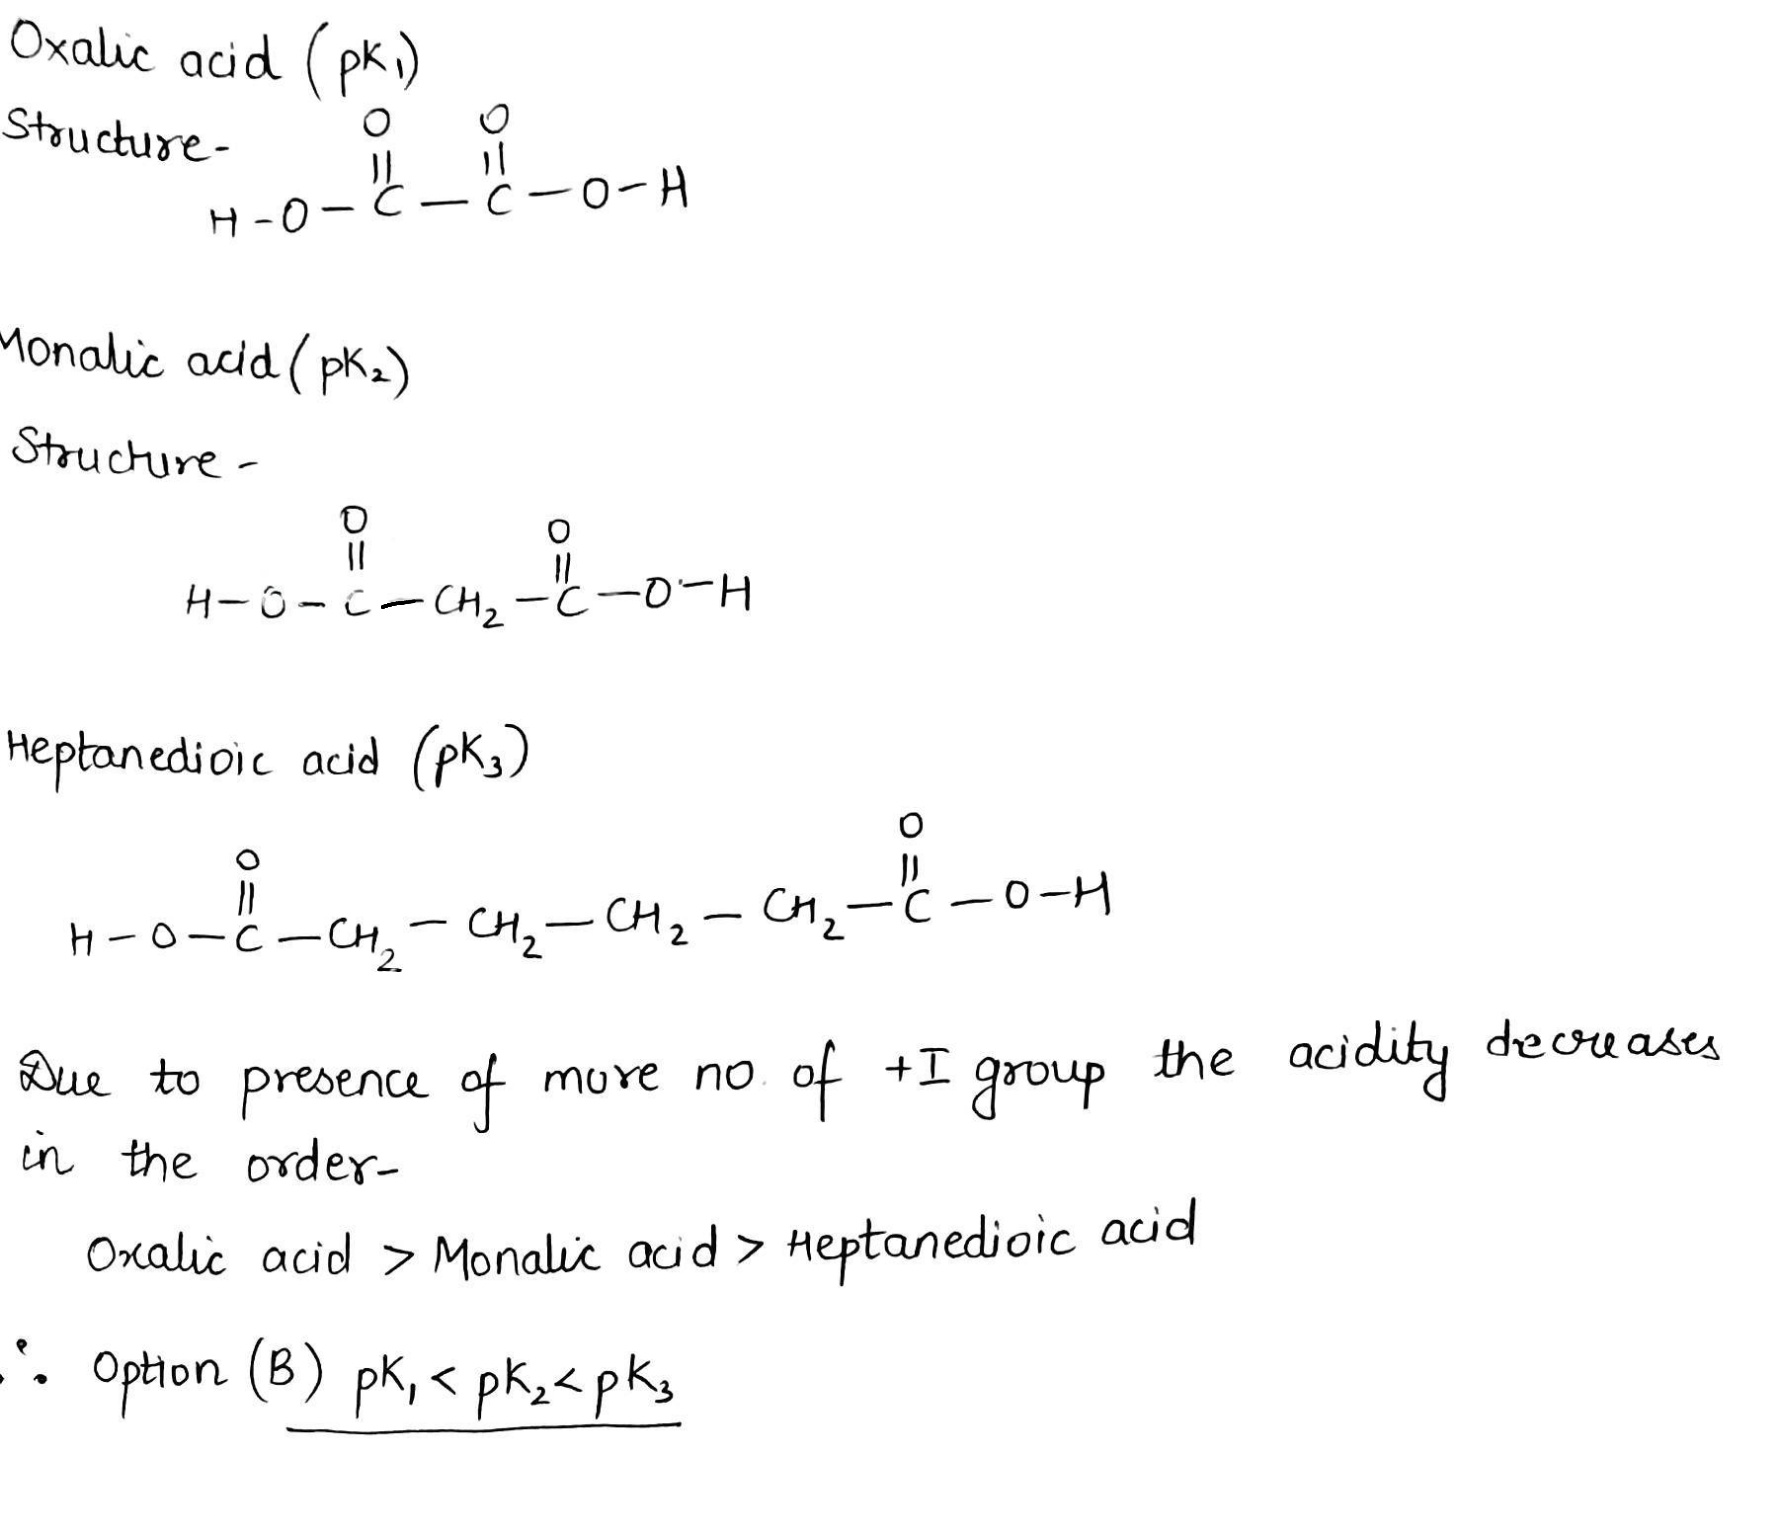 Oxalic acid (pK₁)
Structure-
O O
|| ||
H-O-C-C-O-H
Monalic acid (pK₂)
Structure-
O O
|| ||
H-O-C-CH₂-C-O-H
Heptanedioic acid (pK₃)
O O
|| ||
H-O-C-CH₂-CH₂-CH₂-CH₂-C-O-H
Due to presence of more no. of +I group the acidity decreases
in the order-
Oxalic acid > Monalic acid > Heptanedioic acid
∴ Option (B) pK₁ < pK₂ < pK₃